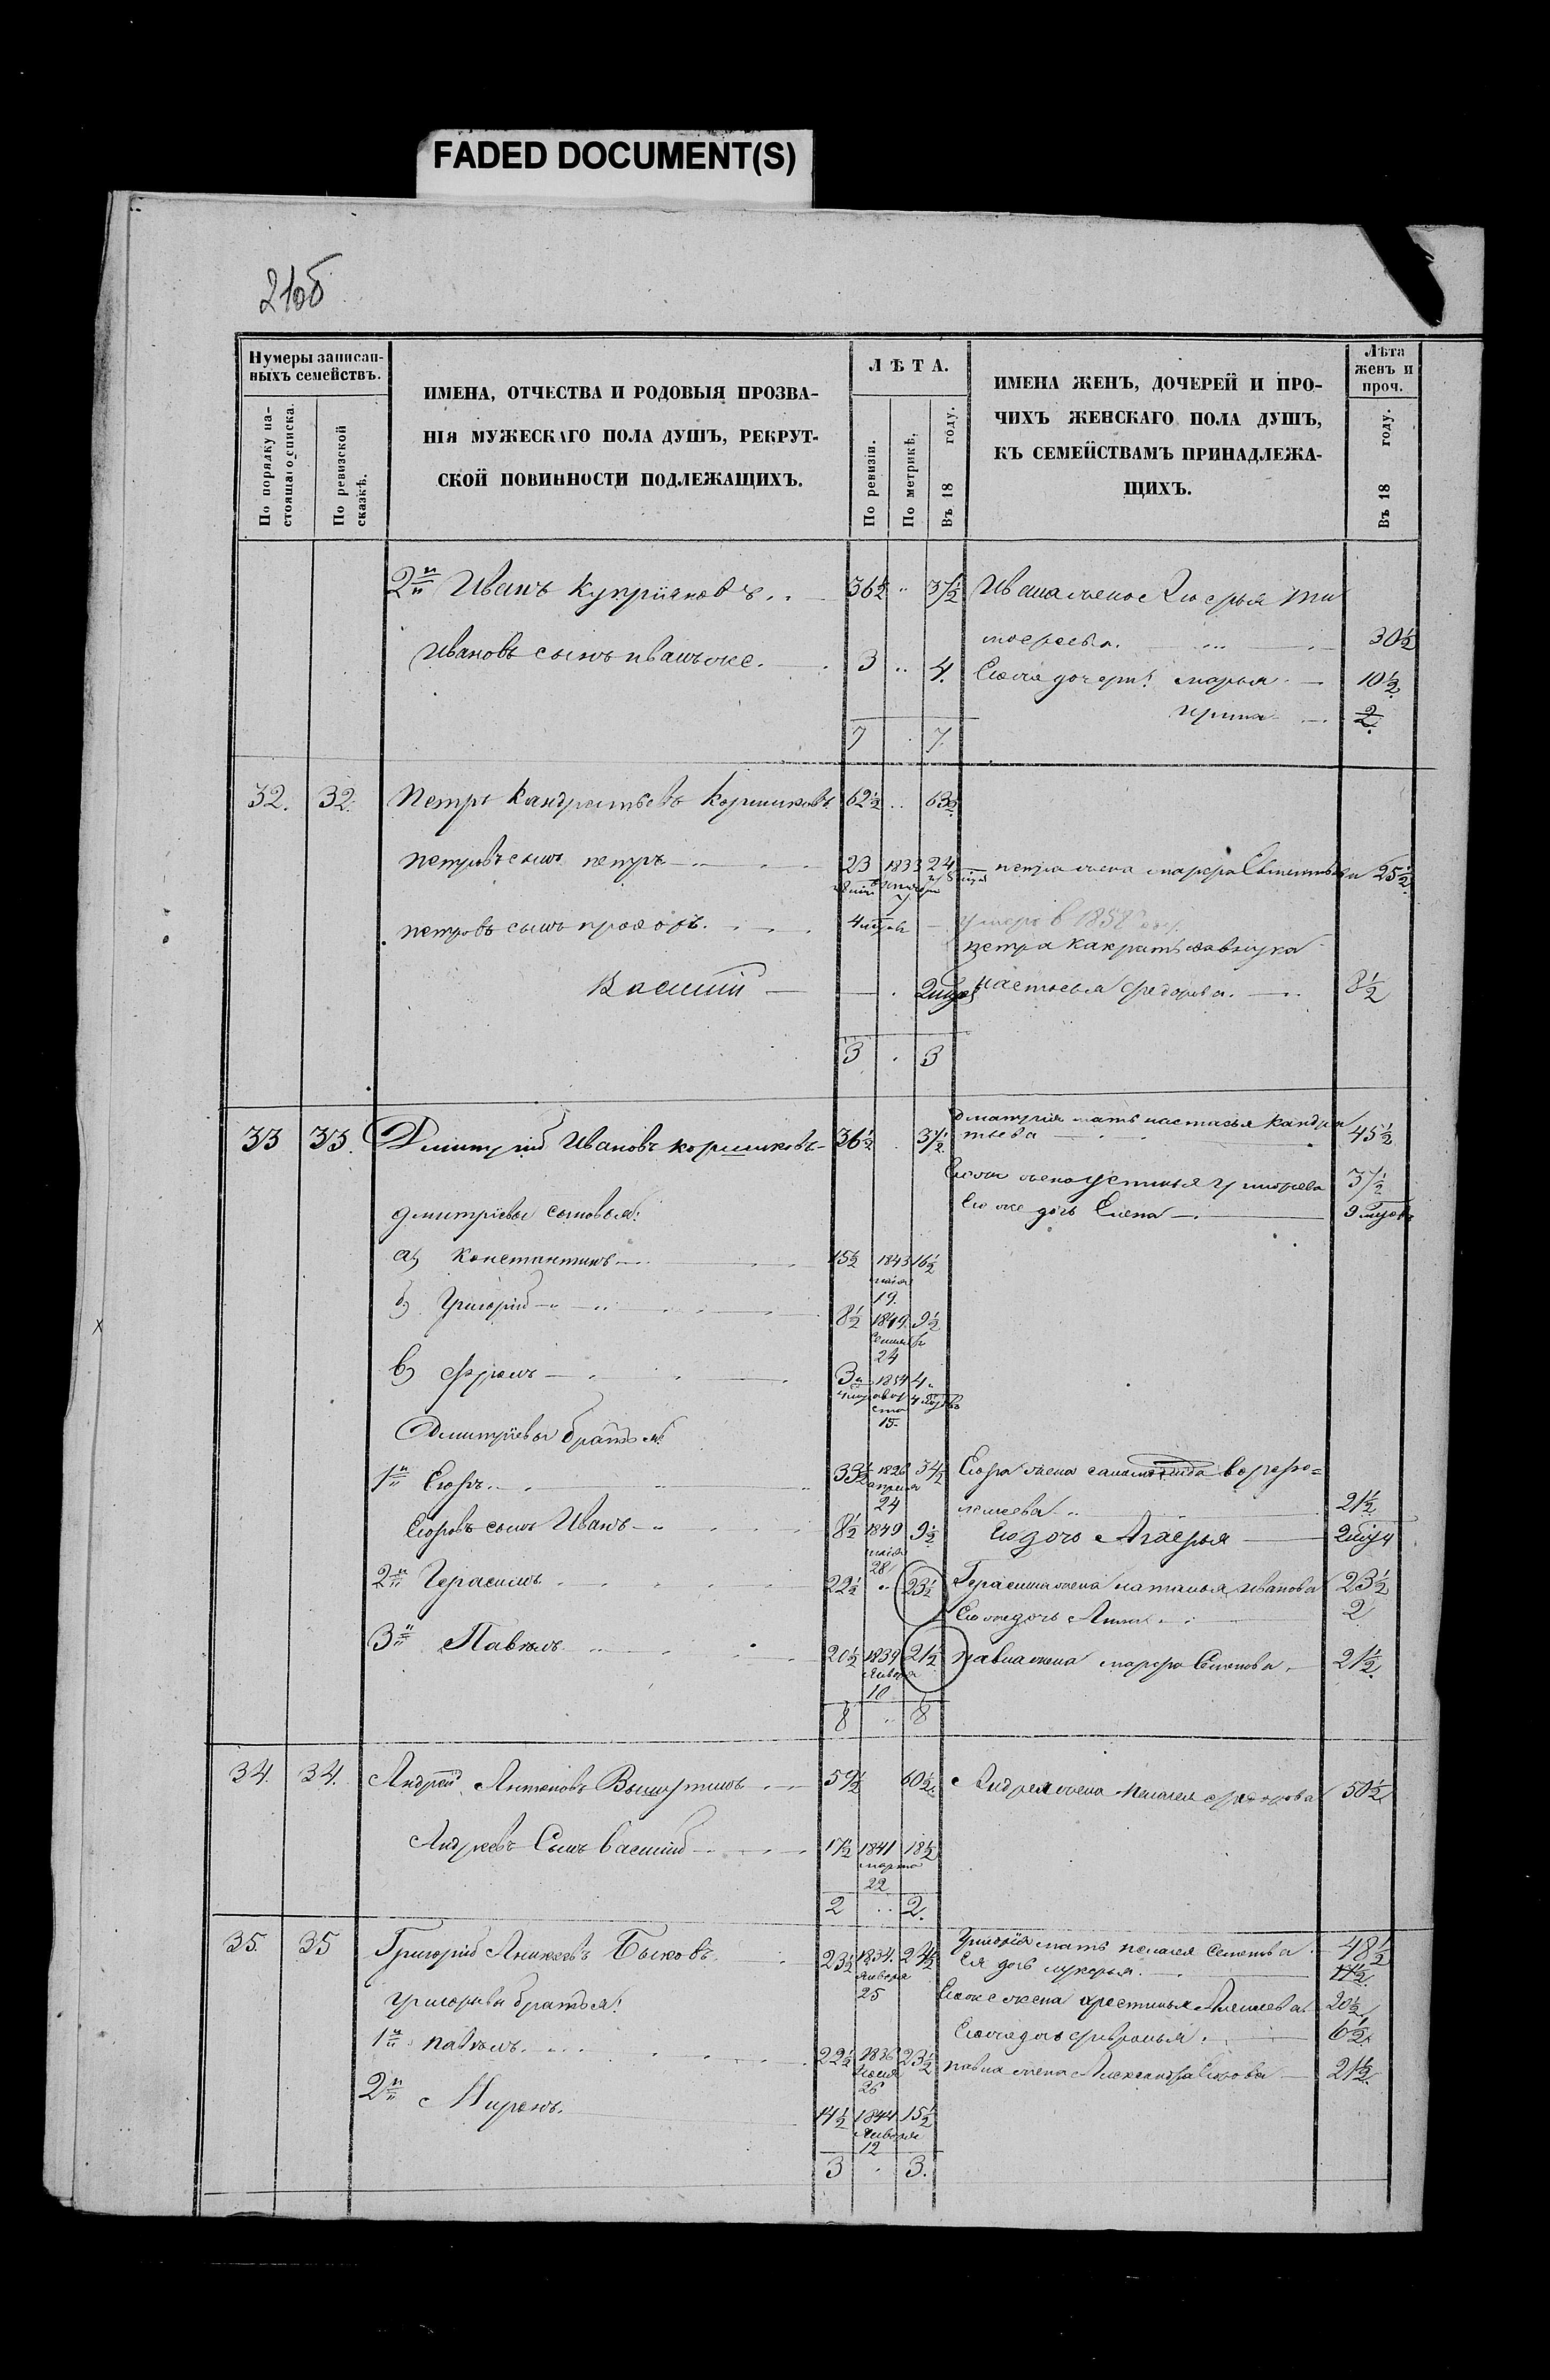 FADED DOCUMENT(S)
210б
Нумеры записан-
ныхъ семействъ.
По порядку на-
стоящаго списка.
По ревизской
сказкѣ.
ИМЕНА, ОТЧЕСТВА И РОДОВЫЯ ПРОЗВА-
НІЯ МУЖЕСКАГО ПОЛА ДУШЪ, РЕКРУТ-
СКОЙ ПОВИННОСТИ ПОДЛЕЖАЩИХЪ.
ЛѢТА.
По ревизіи.
По метрикѣ.
Въ 18 году.
ИМЕНА ЖЕНЪ, ДОЧЕРЕЙ И ПРО-
ЧИХЪ ЖЕНСКАГО ПОЛА ДУШЪ,
КЪ СЕМЕЙСТВАМЪ ПРИНАДЛЕЖА-
ЩИХЪ.
Лѣта
женъ и
проч.
Въ 18 году.
2й Иванъ Купріяновъ 36½ 37½ Ивана жена
30½
Ивановъ сынъ иванъ же. 3 4. Его же дочери: марья 10½
Ирина 2.
7 7.
32. 32. Петръ Кандратьевъ Коршиковъ 62½ 63½
петровъ сынъ петръ 23 1833 24 петра жена марфа 25½
петровъ сынъ прохоръ. 4 умеръ в 1858 году
петра
Василій 2 настасья федорова. 8½
3 3
33 33. Дмитрій Ивановъ коршиковъ 36½ 37½ дмитрія мать настасья Кандра
тьева 45½
Его жена устинья григорьева 37½
дмитріевы сыновья: Его же дочь Елена 9 мцовъ
а, Константинъ 15½ 1843 16½
маія
19.
б, Григорій 8½ 1849 9½
24
в) Ефремъ 3 1854 4
15.
Дмитріевы братья:
1й Егоръ. 33½ 1826 34½ Егора жена
апреля
24 21½
Егоровъ сынъ Иванъ 8½ 1849 9½ Его дочь Агафья 2
маія
28
2й Герасимъ 22½ 23½ Герасима жена наталья иванова 23½
Его же дочь Анна 2
3й Павелъ 20½ 1839 21½ павла жена марфа Семенова 21½
Января
10
8 8
34. 34. Андрей Антоновъ 59½ 60½ Андрея жена пелагея федорова 50½
Андреевъ Сынъ василій 17½ 1841 18½
марта
22
2 2.
35. 35 Григорій Аникеевъ Быковъ 23½ 1834. 24½ Григорія мать пелагея Семенова 48½
Января Ея дочь лукерья. 17½
25
григорьевы братья: Его же жена хрестинья Алексеева 20½
Его же дочь февронья. 6½
1й павелъ. 22½ 1836 23½ павла жена Александра Егорова 21½
26
2й Миронъ. 14½ 1844 15½
Января
12
3 3.